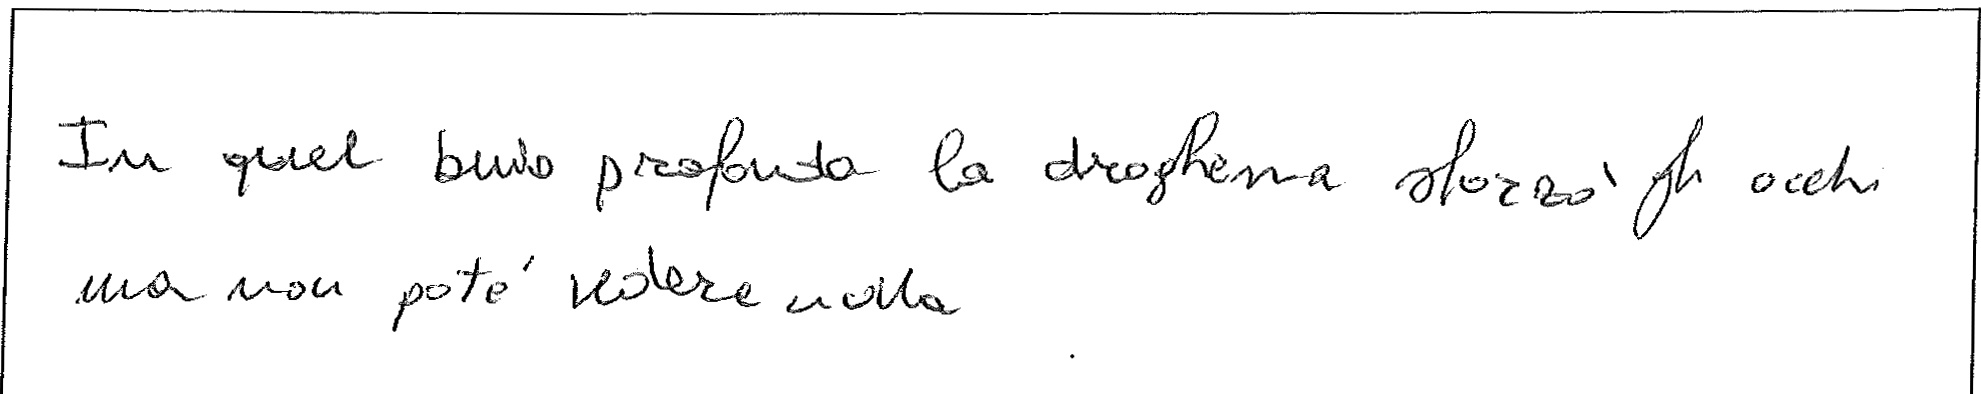 In quel buio profondo la drogheria sforzò gli occhi
ma non poté vedere nulla